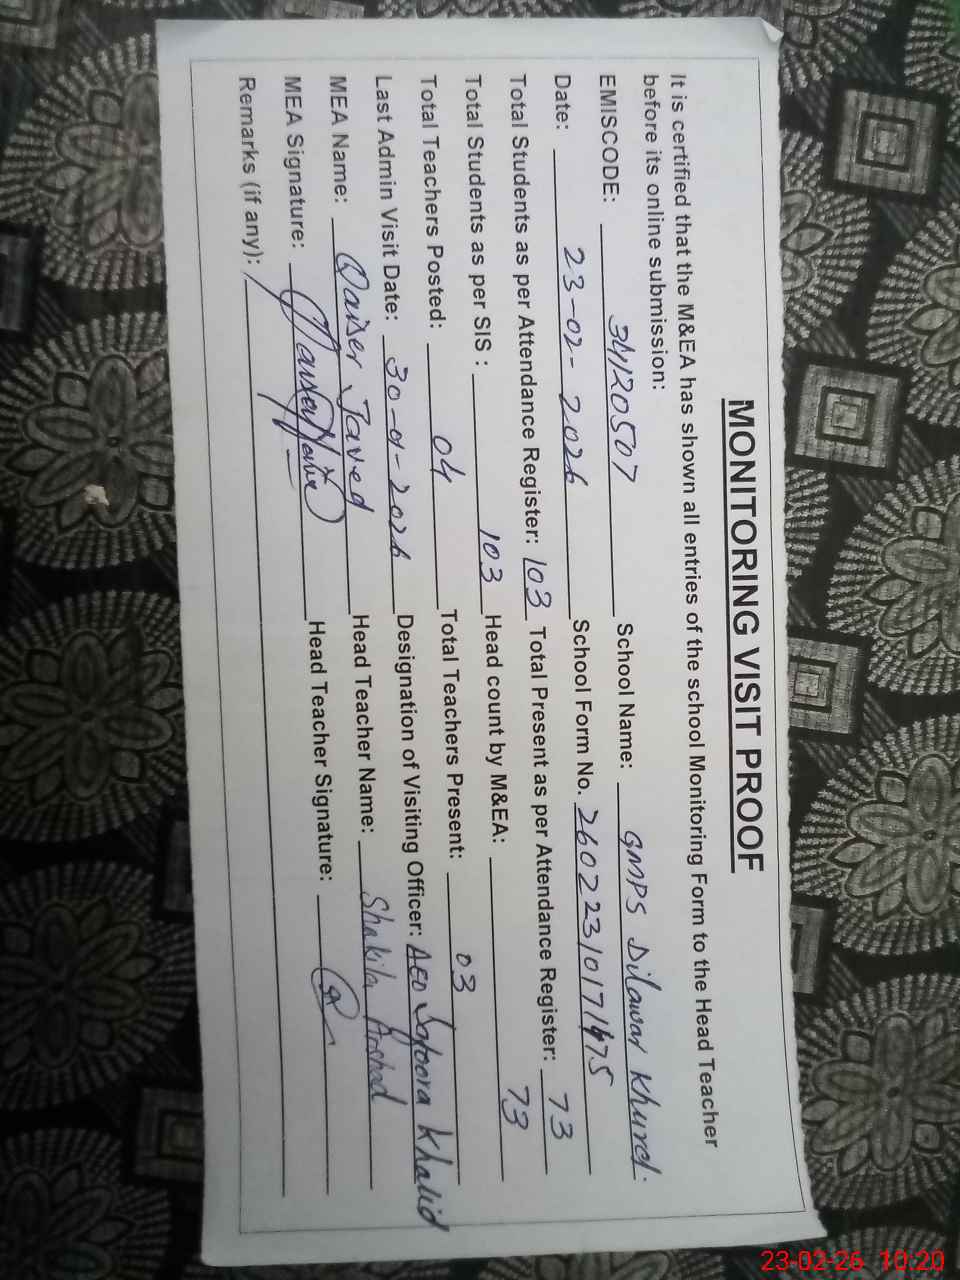 MONITORING VISIT PROOF
It is certified that the M&EA has shown all entries of the school Monitoring Form to the Head Teacher
before its online submission:
EMISCODE: 34120507 School Name: GMPS Dilawar Khurd.
Date: 23-02-2026 School Form No. 260223101711475
Total Students as per Attendance Register: 103 Total Present as per Attendance Register: 73
Total Students as per SIS : 103 Head count by M&EA: 73
Total Teachers Posted: 04 Total Teachers Present: 03
Last Admin Visit Date: 30-01-2026 Designation of Visiting Officer: AEO Khalid
MEA Name: Qaiser Javed Head Teacher Name: Shakila Arshad
MEA Signature: Head Teacher Signature:
Remarks (if any):
23-02-26 10:20